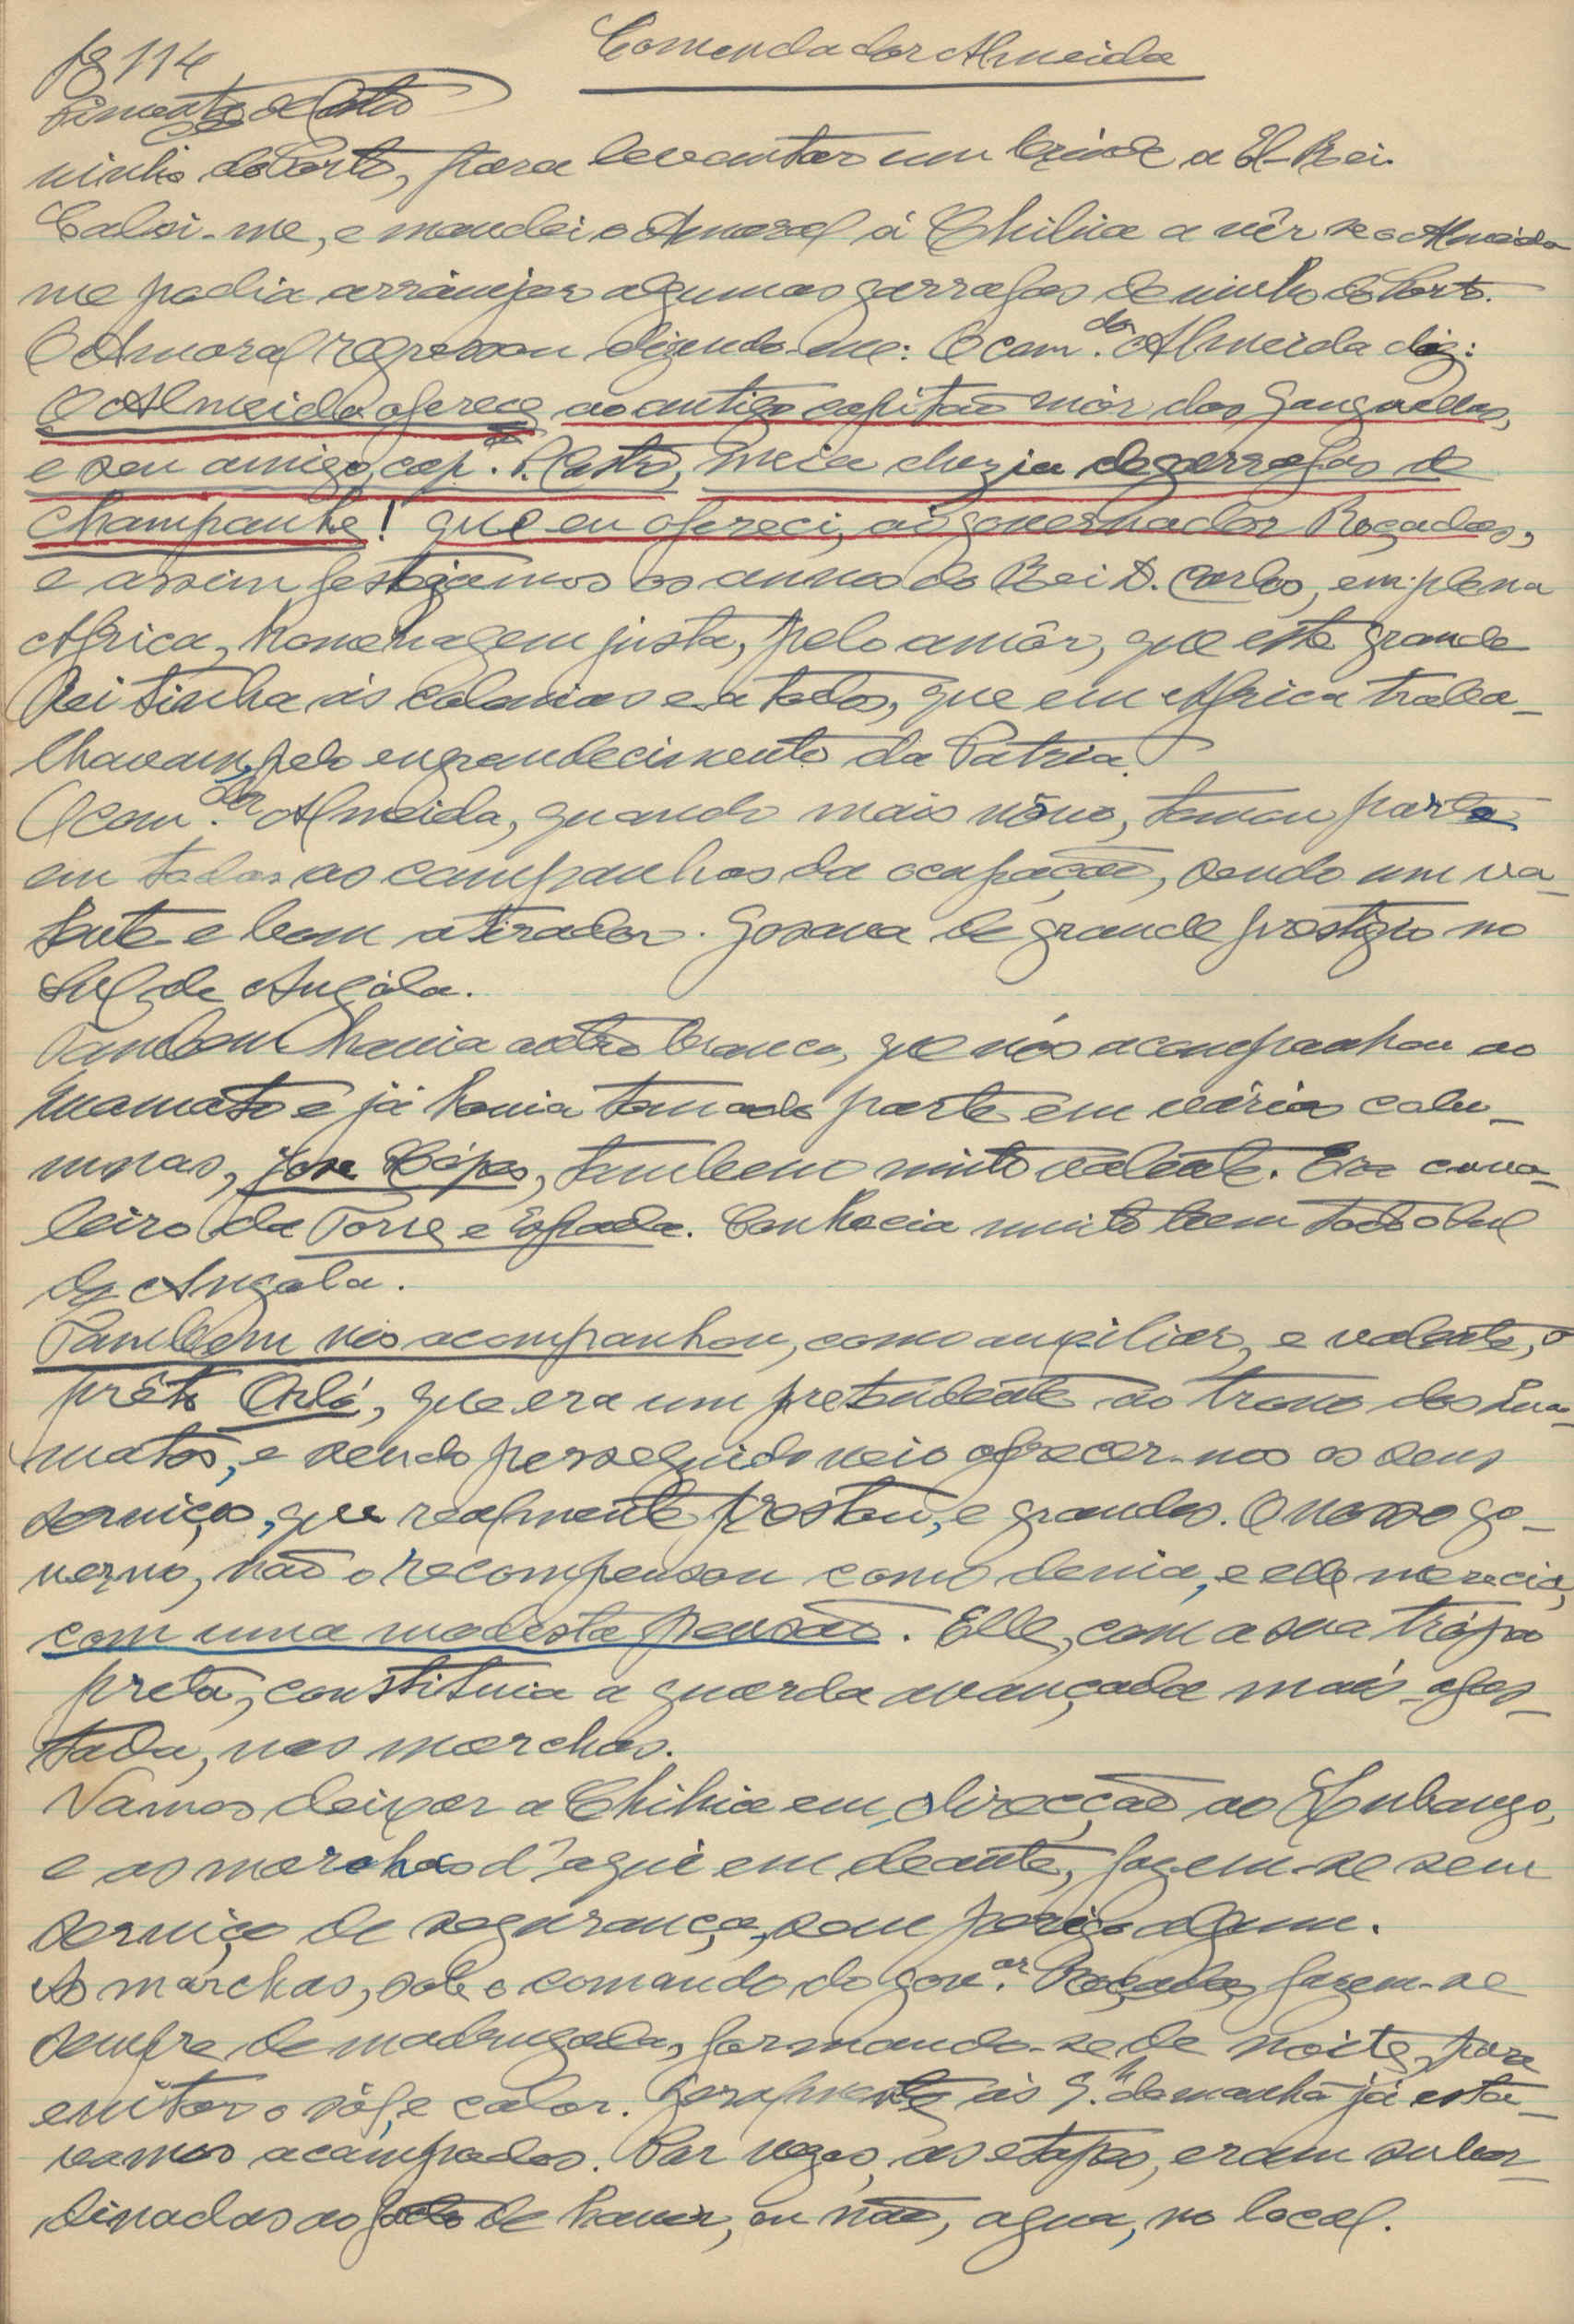 Comendador Almeida
fg 114
Pimenta de Castro
vinho do Porto, para levantar um brinde a El-Rei.
Calei-me, e mandei o Amaral á Chibia a vêr se o Almeida
me podia arranjar algumas garrafas de vinho do Porto.
O Amaral regressou dizendo-me: O com.dor Almeida diz:
O Almeida oferece ao antigo capitão mór dos Ganguellas,
e seu amigo, cap.m P. Castro, meia duzia de garrafas de
Champanhe! que eu ofereci, ao governador Roçadas,
e assim festejámos os annos do Rei D. Carlos, em plena
Africa, homenagem justa, pelo amôr, que este grande
Rei tinha ás colonias e a todos, que em Africa traba-
lhavam, pelo engrandecimento da Patria.
O com.dor Almeida, quando mais nôvo, tomou parte
em todas as campanhas da ocupação, sendo um va-
lente e bom atirador. Gosava de grande prestigio no
Sul de Angóla.
Tambem havia outro branco, que nos acompanhou ao
Cuamato e já havia tomado parte em várias colu-
mnas, José Lópes, tambem muito valente. Era cava-
leiro da Torre e Espada. Conhecia muito bem todo o Sul
de Angola.
Tambem nos acompanhou, como auxiliar, e valente, o
prêto Orló, que era um pretendente ao trono dos Cua-
matos, e sendo perseguido veio oferecer-nos os seus
serviços, que realmente prestou, e grandes. O nosso go-
verno, não o recompensou como devia, e elle merecia,
com uma modesta pensão. Elle, com a sua trópa
preta, constituia a guarda avançada mais afas-
tada, nas marchas.
Vamos deixar a Chibia em direcção ao Lubango,
e as marchas d'aqui em deante, fazem-se sem
serviço de segurança, sem perigo algum.
As marchas, sob o comando do gov.or Roçadas, fazem-se
sempre de madrugada, formando-se de noite, para
evitar o sól, e calor. Geralmente ás 9.h da manhã já está-
vamos acampados. Por vezes, as etapas, eram subor-
dinadas ao facto de haver, ou não, agua, no local.